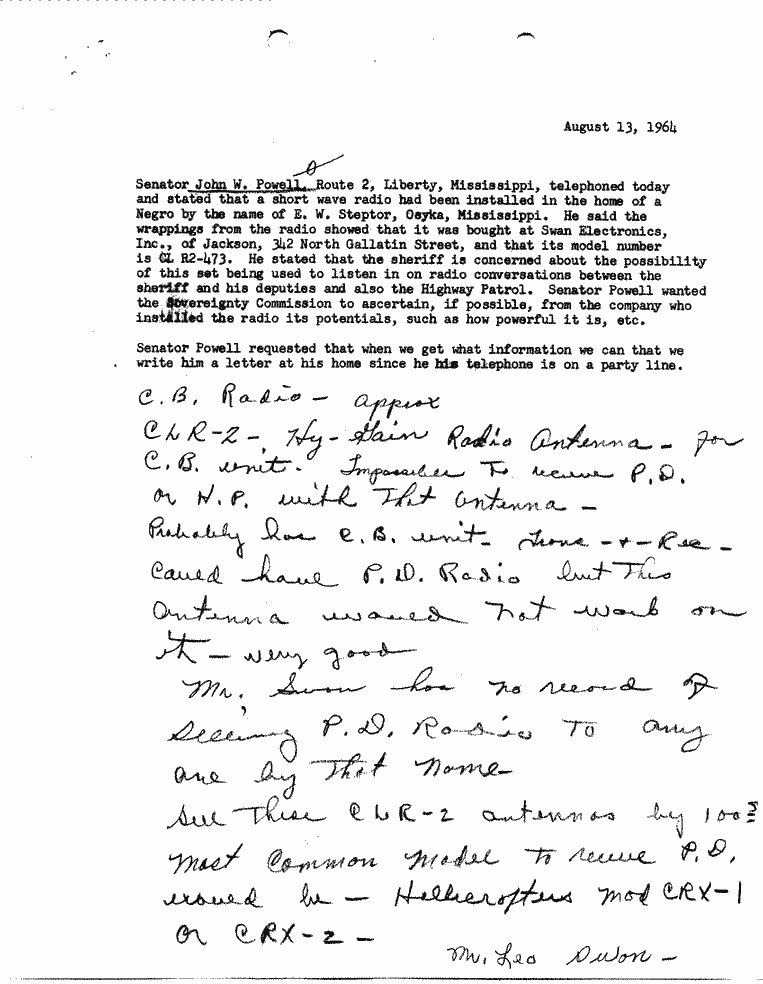 August 13, 1964
Senator John W. Powell, Route 2, Liberty, Mississippi, telephoned today
and stated that a short wave radio had been installed in the home of a
Negro by the name of E. W. Steptor, Osyka, Mississippi. He said the
wrappings from the radio showed that it was bought at Swan Electronics,
Inc., of Jackson, 342 North Gallatin Street, and that its model number
is CL R2-473. He stated that the sheriff is concerned about the possibility
of this set being used to listen in on radio conversations between the
sheriff and his deputies and also the Highway Patrol. Senator Powell wanted
the Sovereignty Commission to ascertain, if possible, from the company who
installed the radio its potentials, such as how powerful it is, etc.
Senator Powell requested that when we get what information we can that we
write him a letter at his home since he his telephone is on a party line.
C.B. Radio - approx
CLR-2-, Hy-Gain Radio Antenna - for
C.B. unit. Impossible To receive P.D.
or H.P. with That antenna -
Probably has C.B. unit- Trans - + - Rec -
Could have P.D. Radio but This
antenna would not work on
it - very good
Mr. Swan has no record of
selling P.D. Radio To any
one by That Name-
Sell These CLR-2 antennas by 100s
Most Common Model To receive P.D.
would be - Hallicrafters Mod CRX-1
or CRX-2 -
Mr. Leo Swan -